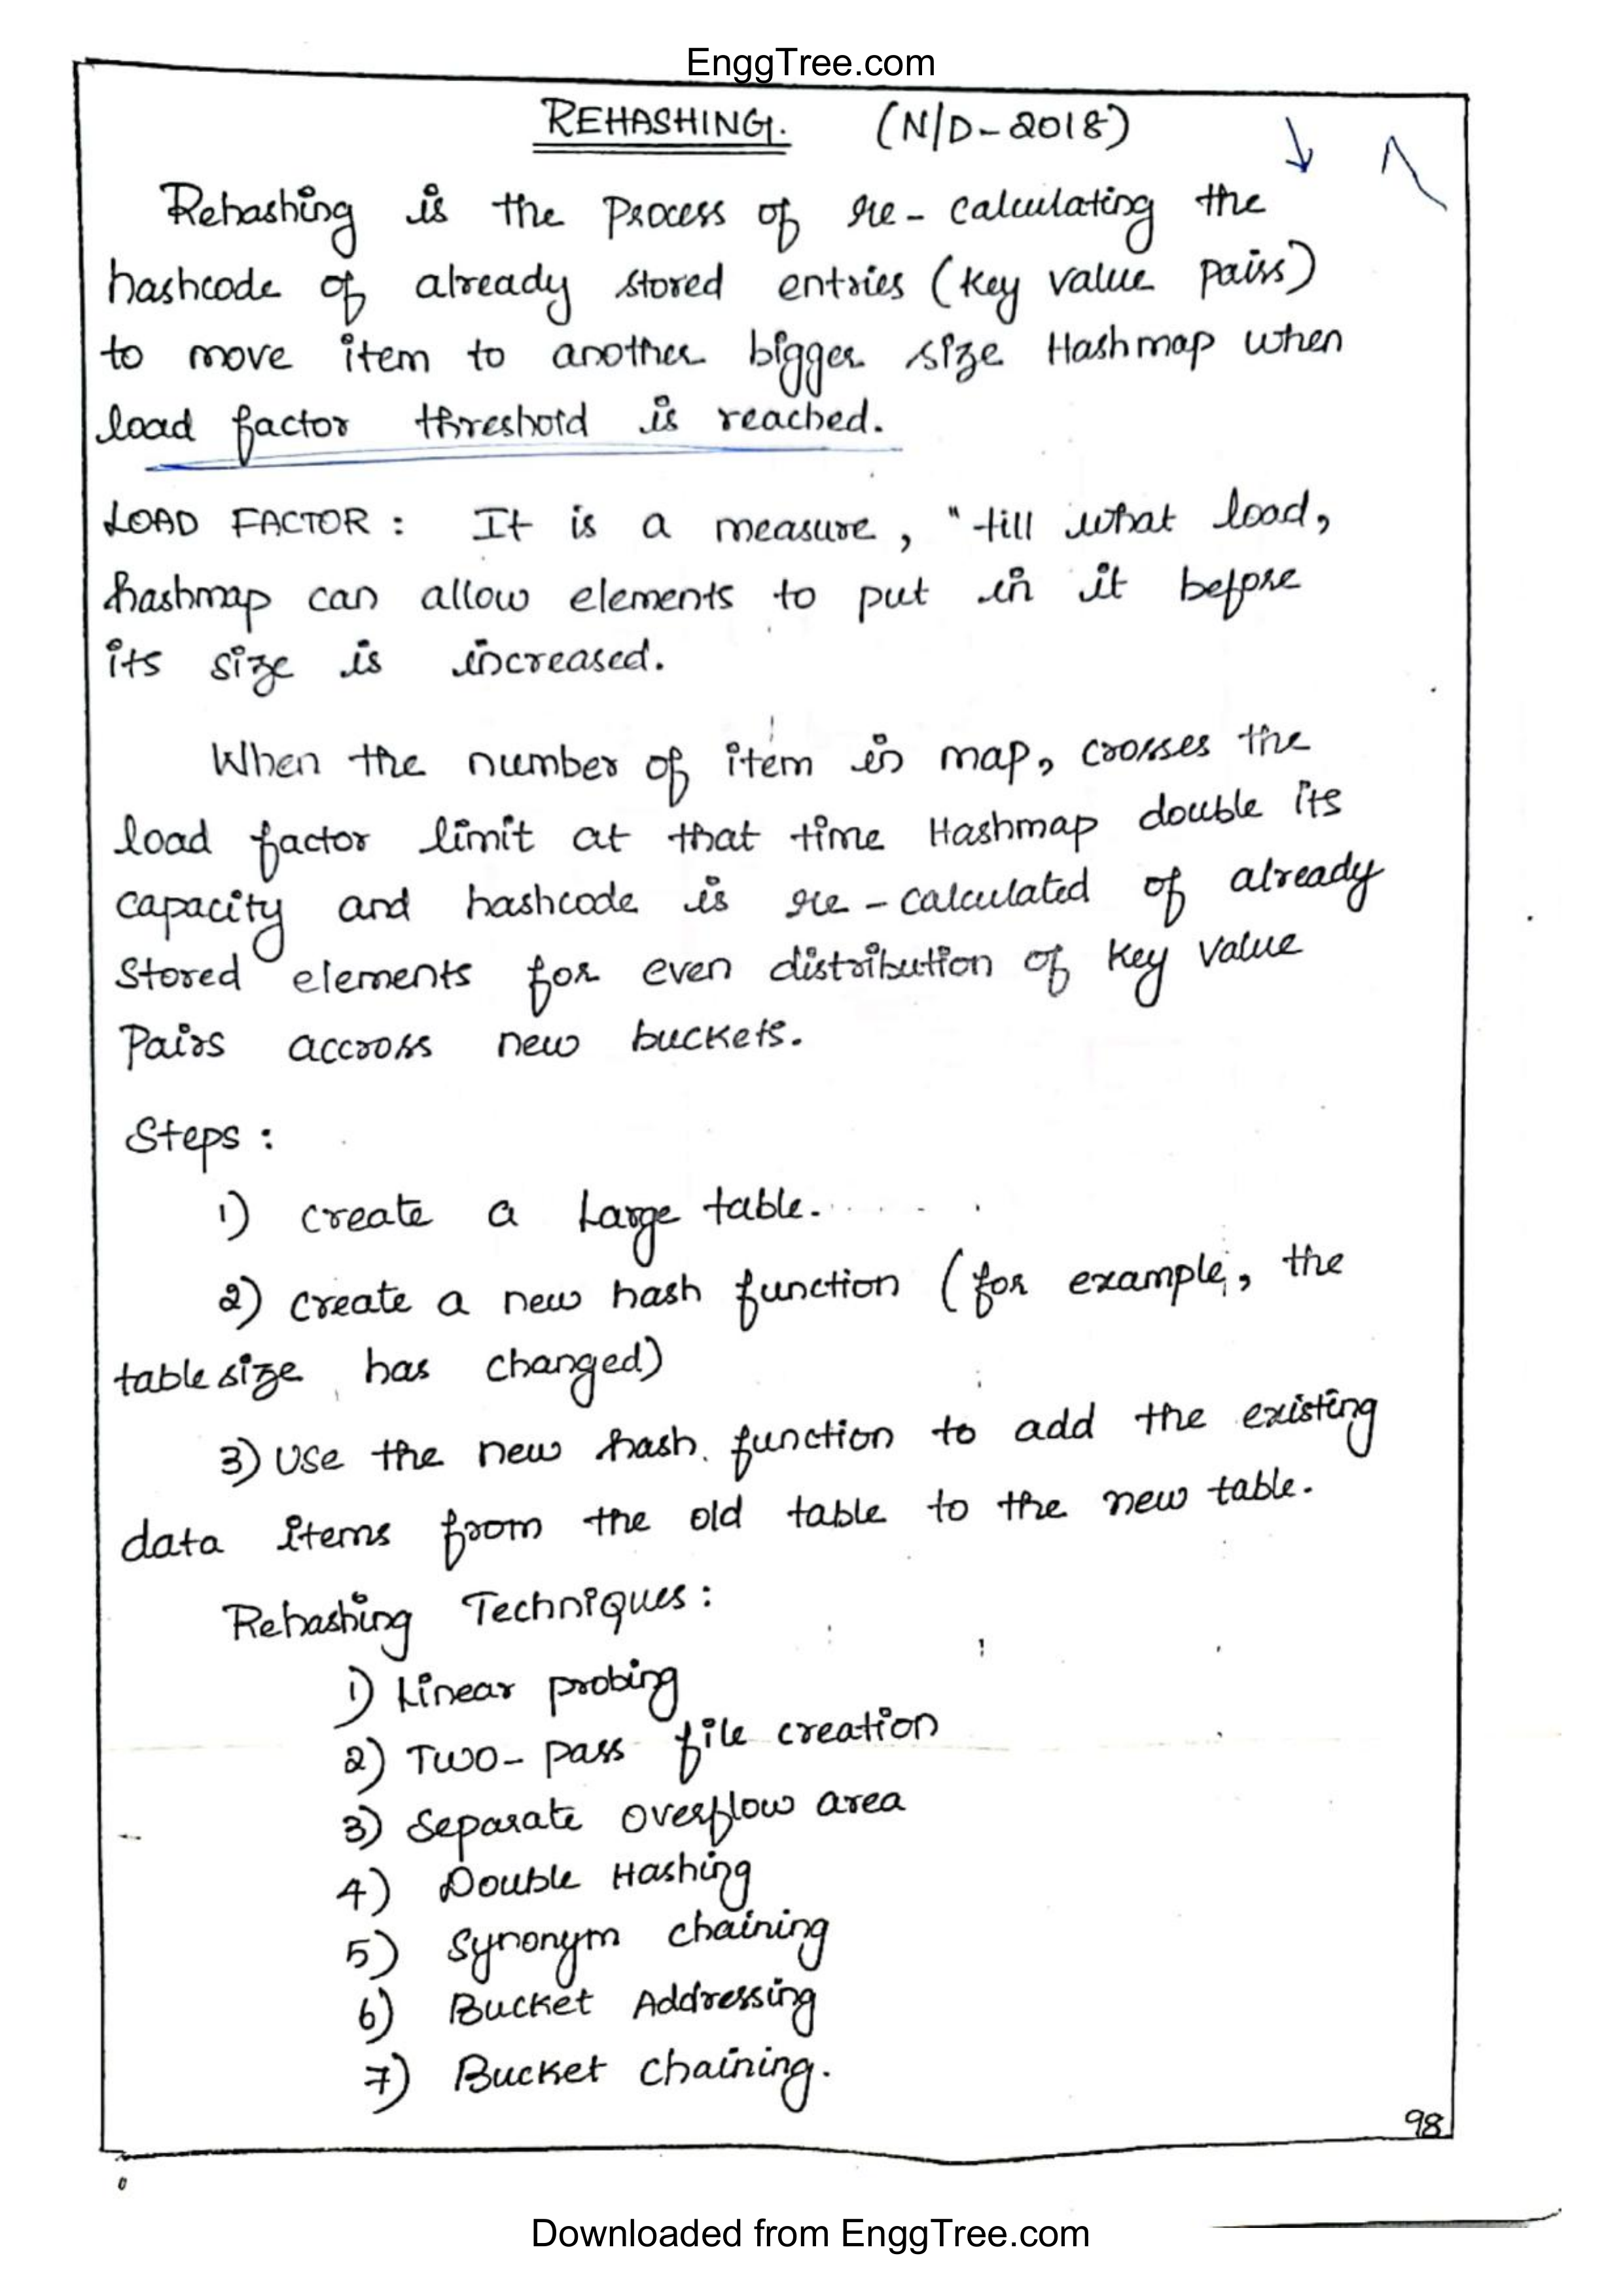 EnggTree.com
REHASHING. (N/D-2018)
Rehashing is the Process of re-calculating the
hashcode of already stored entries (Key value pairs)
to move item to another bigger size Hashmap when
load factor threshold is reached.
LOAD FACTOR : It is a measure, "till what load,
hashmap can allow elements to put in it before
its size is increased.
When the number of item in map, crosses the
load factor limit at that time Hashmap double its
capacity and hashcode is re-calculated of already
Stored elements for even distribution of Key value
Pairs accross new buckets.
Steps :
1) create a Large table.
2) create a new hash function (for example, the
table size has changed)
3) Use the new hash function to add the existing
data items from the old table to the new table.
Rehashing Techniques :
1) Linear probing
2) Two-pass file creation
3) Separate overflow area
4) Double Hashing
5) Synonym chaining
6) Bucket Addressing
7) Bucket chaining.
98
Downloaded from EnggTree.com